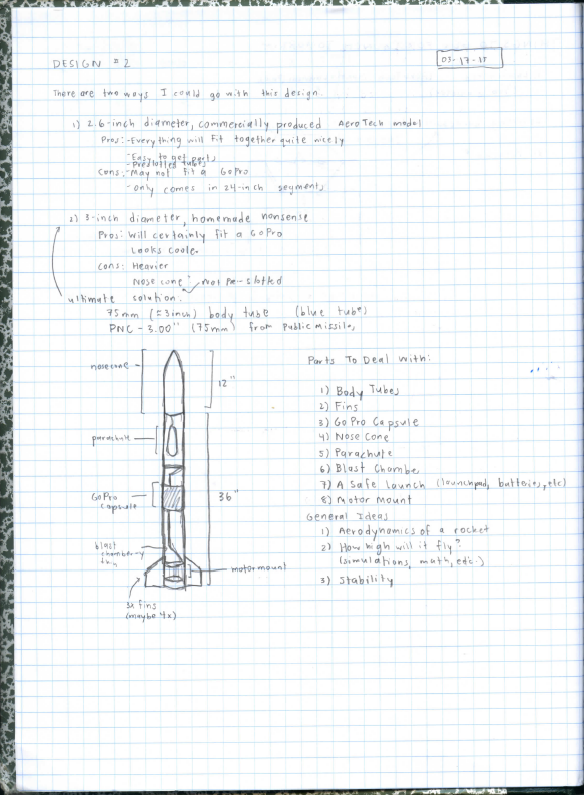 DESIGN #2
03-17-15
There are two ways I could go with this design.
1) 2.6-inch diameter, commercially produced AeroTech model
Pros: -Everything will fit together quite nicely
-Easy to get parts
-Preslotted tubes
Cons: -May not fit a GoPro
-only comes in 24-inch segments
2) 3-inch diameter, homemade nonsense
Pros: Will certainly fit a GoPro
Looks cooler
Cons: Heavier
Nose cone Not pre-slotted
ultimate solution:
75mm (≈3inch) body tube (blue tube)
PNC-3.00" (75mm) from Public Missiles
nosecone
12"
parachute
GoPro
capsule
36"
blast
chambery
motormount
3x fins
(maybe 4x)
Parts To Deal With:
1) Body Tubes
2) Fins
3) GoPro Capsule
4) Nose Cone
5) Parachute
6) Blast Chamber
7) A Safe Launch (launchpad, batteries, etc)
8) Motor Mount
General Ideas
1) Aerodynamics of a rocket
2) How high will it fly?
(simulations, math, etc.)
3) Stability